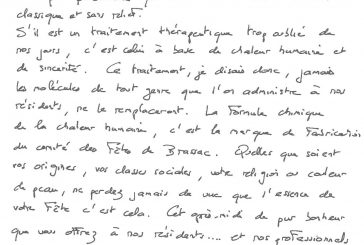 classique et sans relief.
S'il est un traitement thérapeutique trop oublié de
nos jours, c'est celui à base de chaleur humaine et
de sincérité. Ce traitement, je disais donc, jamais
les molécules de tout genre que l'on administre à nos
résidents, ne le remplaceront. La formule chimique
de la chaleur humaine, c'est la marque de fabrication
du comité des Fête de Brassac. Quelles que soient
vos origines, vos classes sociales, votre religion ou couleur
de peau, ne perdez jamais de vue que l'essence de
votre Fête c'est cela. Cet après-midi de pur bonheur
que vous offrez à nos résidents.... et nos professionnels